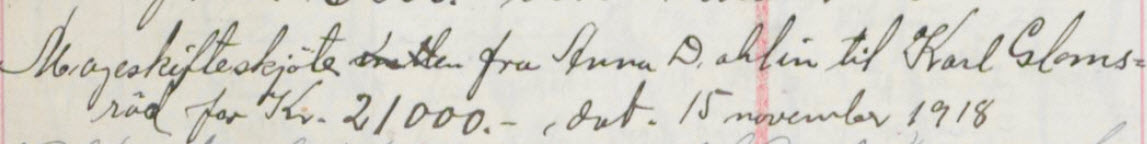 Mageskifteskjöte fra Anna Dahlin til Karl Gloms-
röd for Kr. 21000.-, dat. 15 november 1918